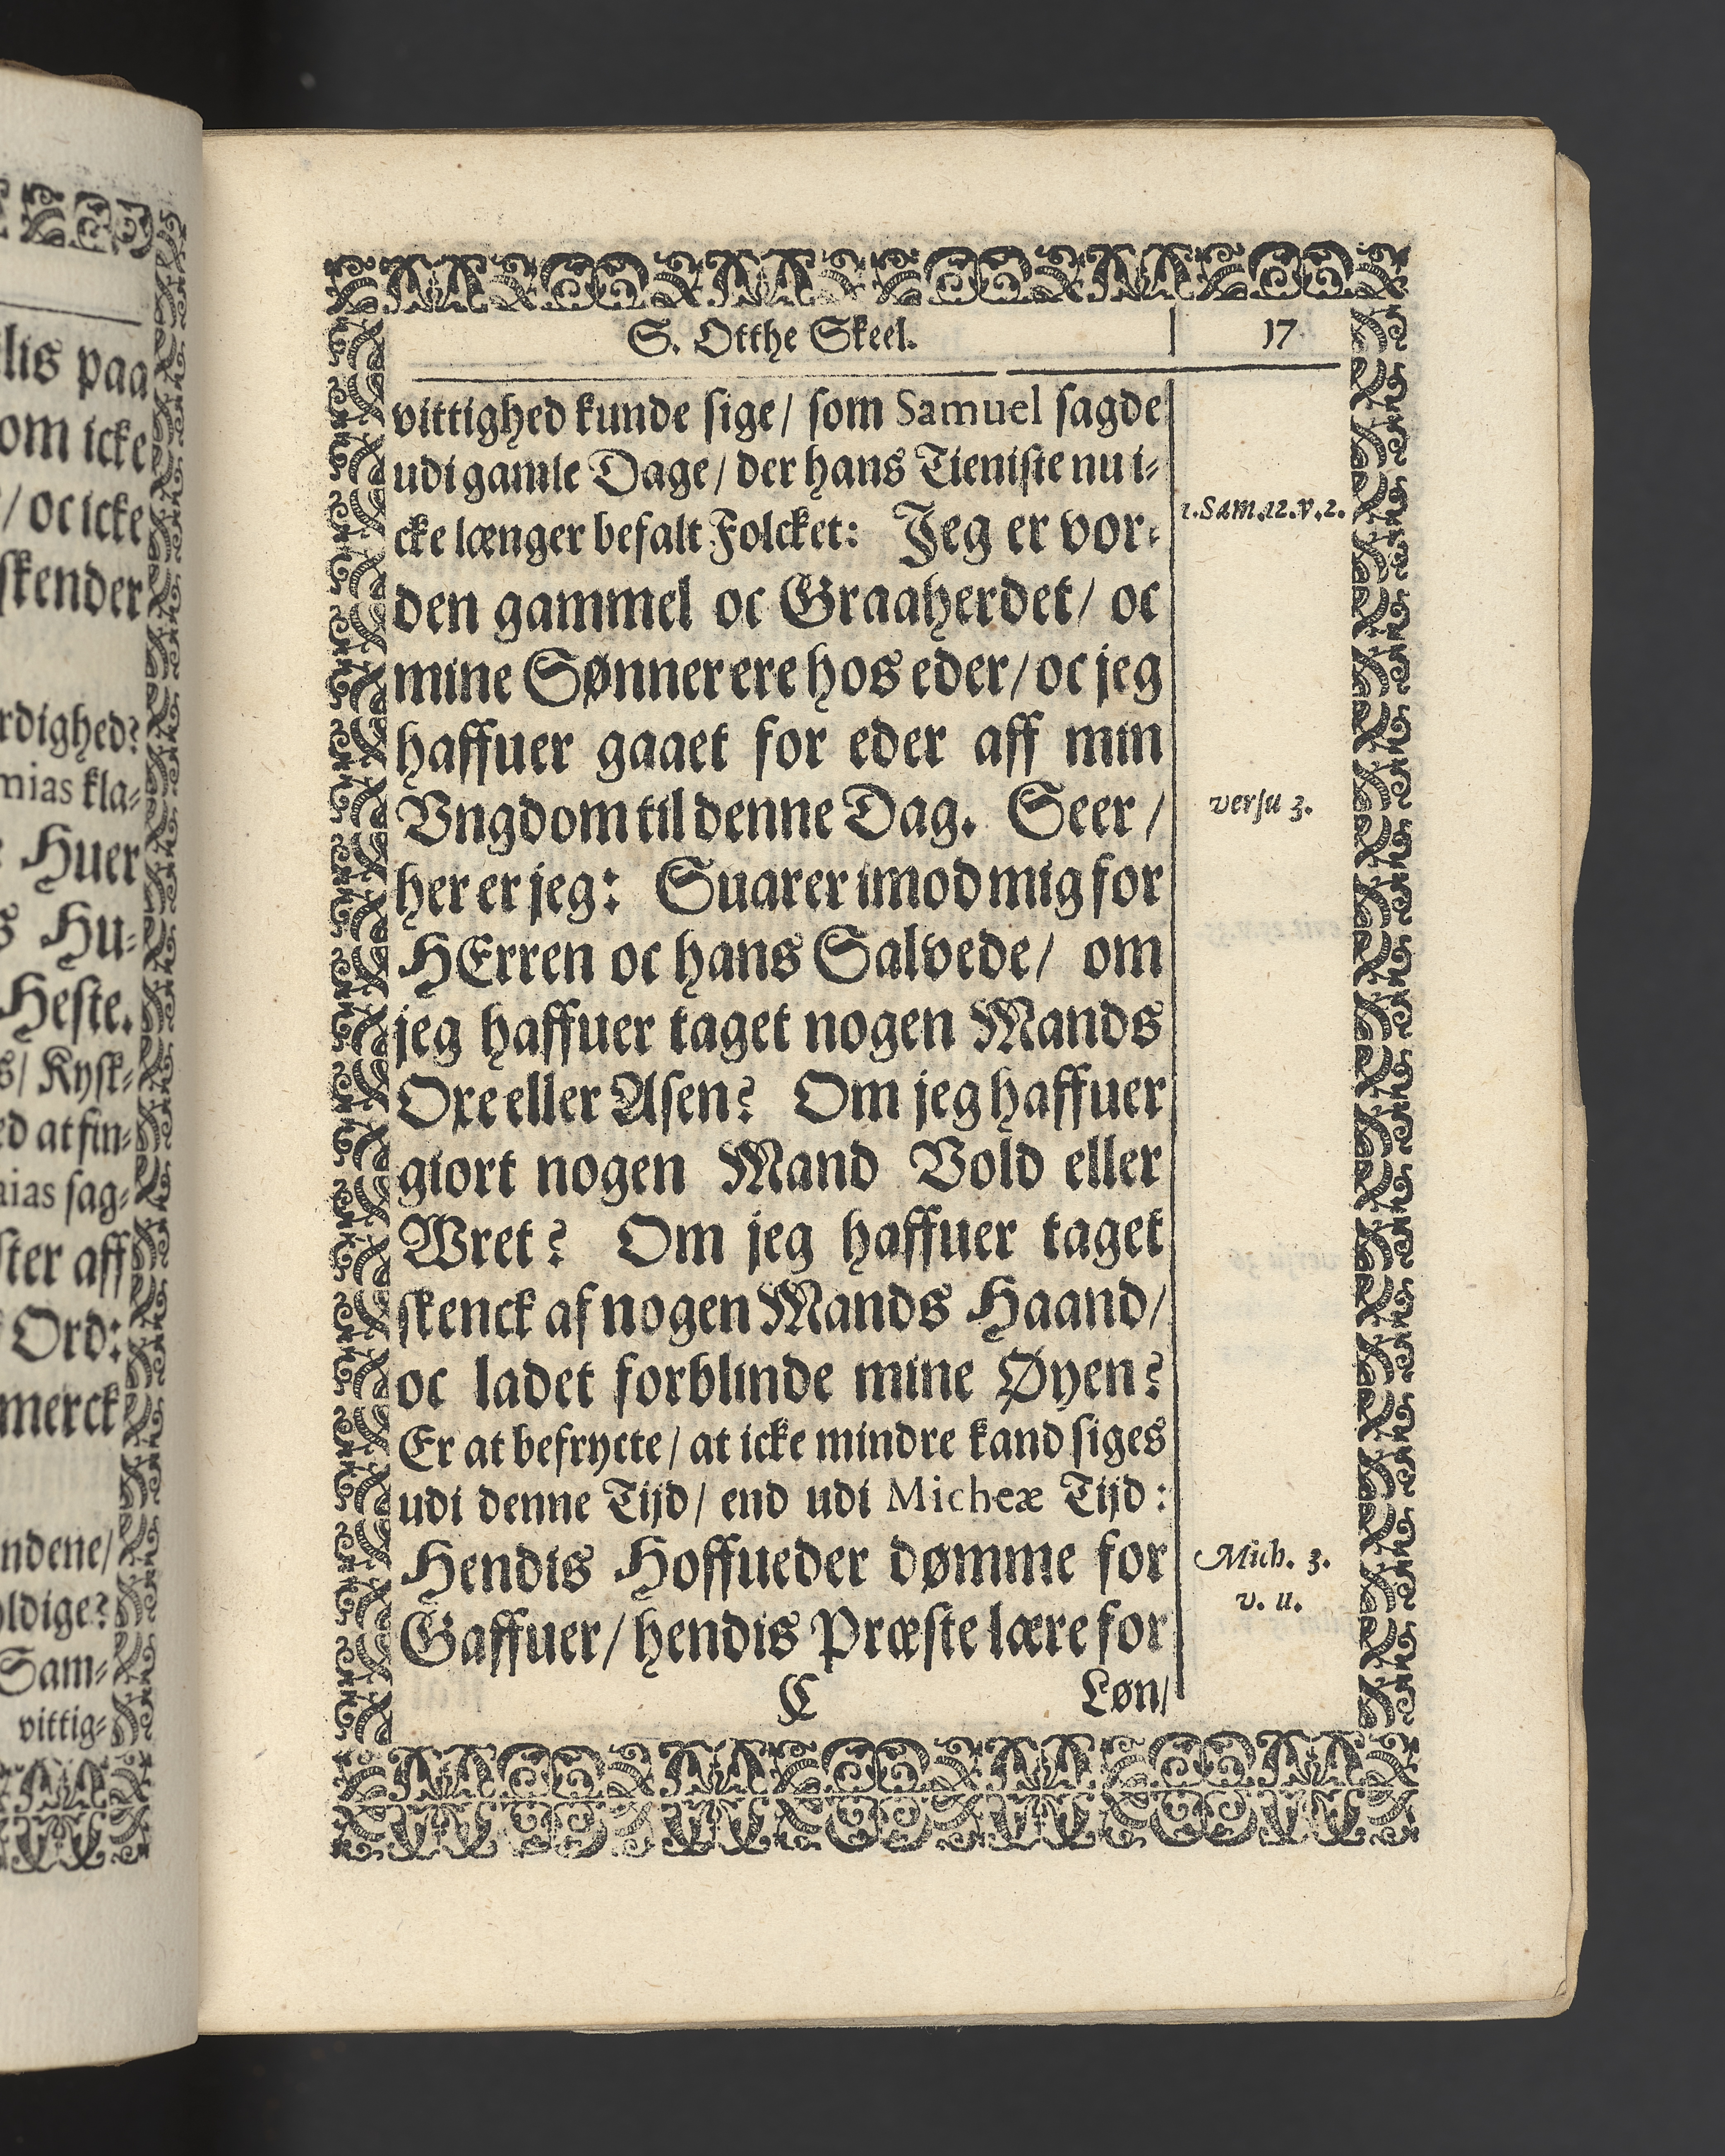 lis paa
om icke
/ oc icke
skender
rdighed?
mias kla-
Huer
s Hu-
Heste.
s/ Kysk-
ed at fin-
aias sag-
ster aff
Ord:
merck
ndene/
ldige?
Sam-
vittig-
S. Otthe Skeel.
17
vittighed kunde sige/ som Samuel sagde
udi gamle Dage/ der hans Tieniste nu i-
cke længer befalt Folcket: Jeg er vor-
1. Sam. 12. v. 2.
den gammel oc Graaherdet/ oc
mine Sønner ere hos eder/ oc jeg
haffuer gaaet for eder aff min
Vngdom til denne Dag. Seer/
versu 3.
her er jeg: Suarer imod mig for
HErren oc hans Salvede/ om
jeg haffuer taget nogen Mands
Oxe eller Asen? Om jeg haffuer
giort nogen Mand Vold eller
Wret? Om jeg haffuer taget
skenck af nogen Mands Haand/
oc ladet forblinde mine Øyen?
Er at befrycte/ at icke mindre kand siges
udi denne Tijd/ end udi Micheæ Tijd:
Hendis Hoffueder dømme for
Mich. 3.
v. 11.
Gaffuer/ hendis Præste lære for
C
Løn/